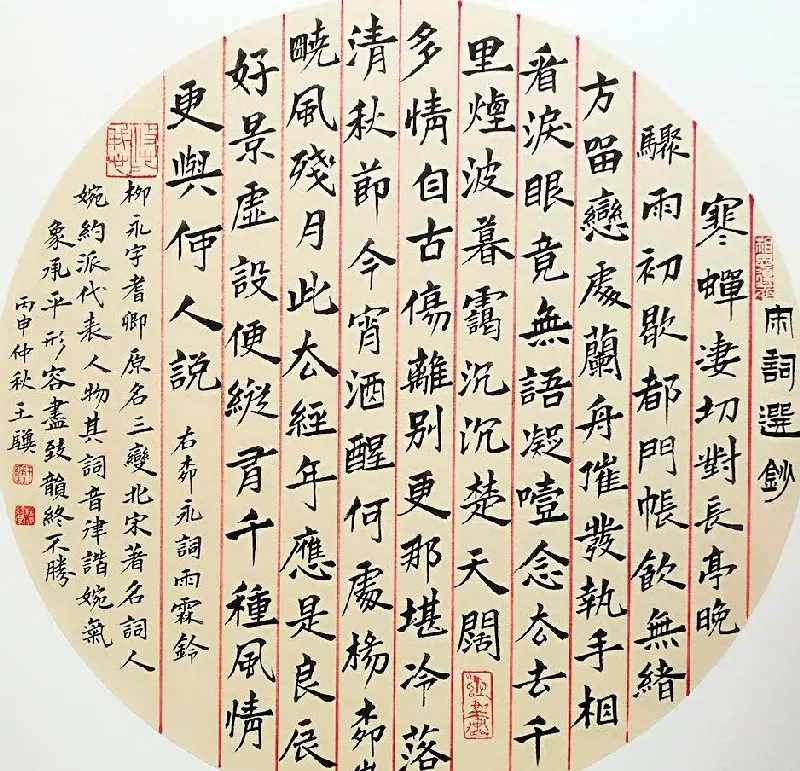 宋詞選鈔
寒蟬淒切對長亭晚
驟雨初歇都門帳飲無緒
方留戀處蘭舟催發執手相
看淚眼竟無語凝噎念厺去千
里煙波暮靄沉沉楚天闊
多情自古傷離別更那堪冷落
清秋節今宵酒醒何處楊柳
曉風殘月此厺經年應是良辰
好景虛設便縱有千種風情
更與何人說
右柳永詞雨霖鈴
柳永字耆卿原名三變北宋著名詞人
婉約派代表人物其詞音律諧婉氣
象承平形容盡致韻終不勝
丙申仲秋王